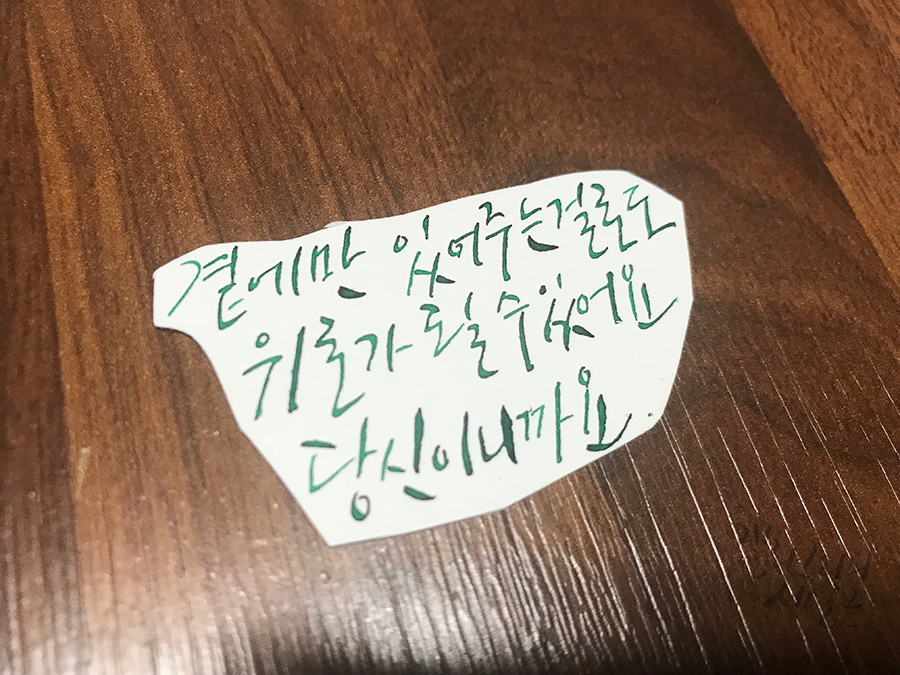 곁에만 있어주는걸로도
위로가 되실 수 있어요
당신이니까요.